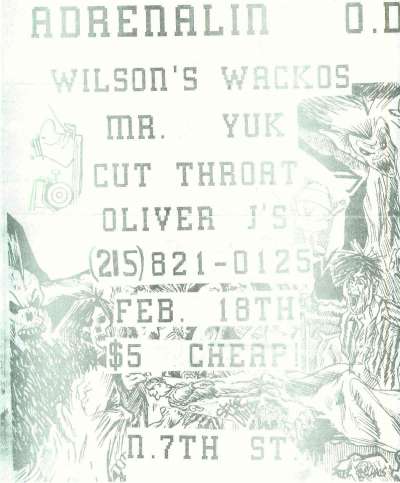 ADRENALIN O.D
WILSON'S WACKOS
MR. YUK
CUT THROAT
OLIVER J'S
(215)821-0125
FEB. 18TH
$5 CHEAP!
N.7TH ST.